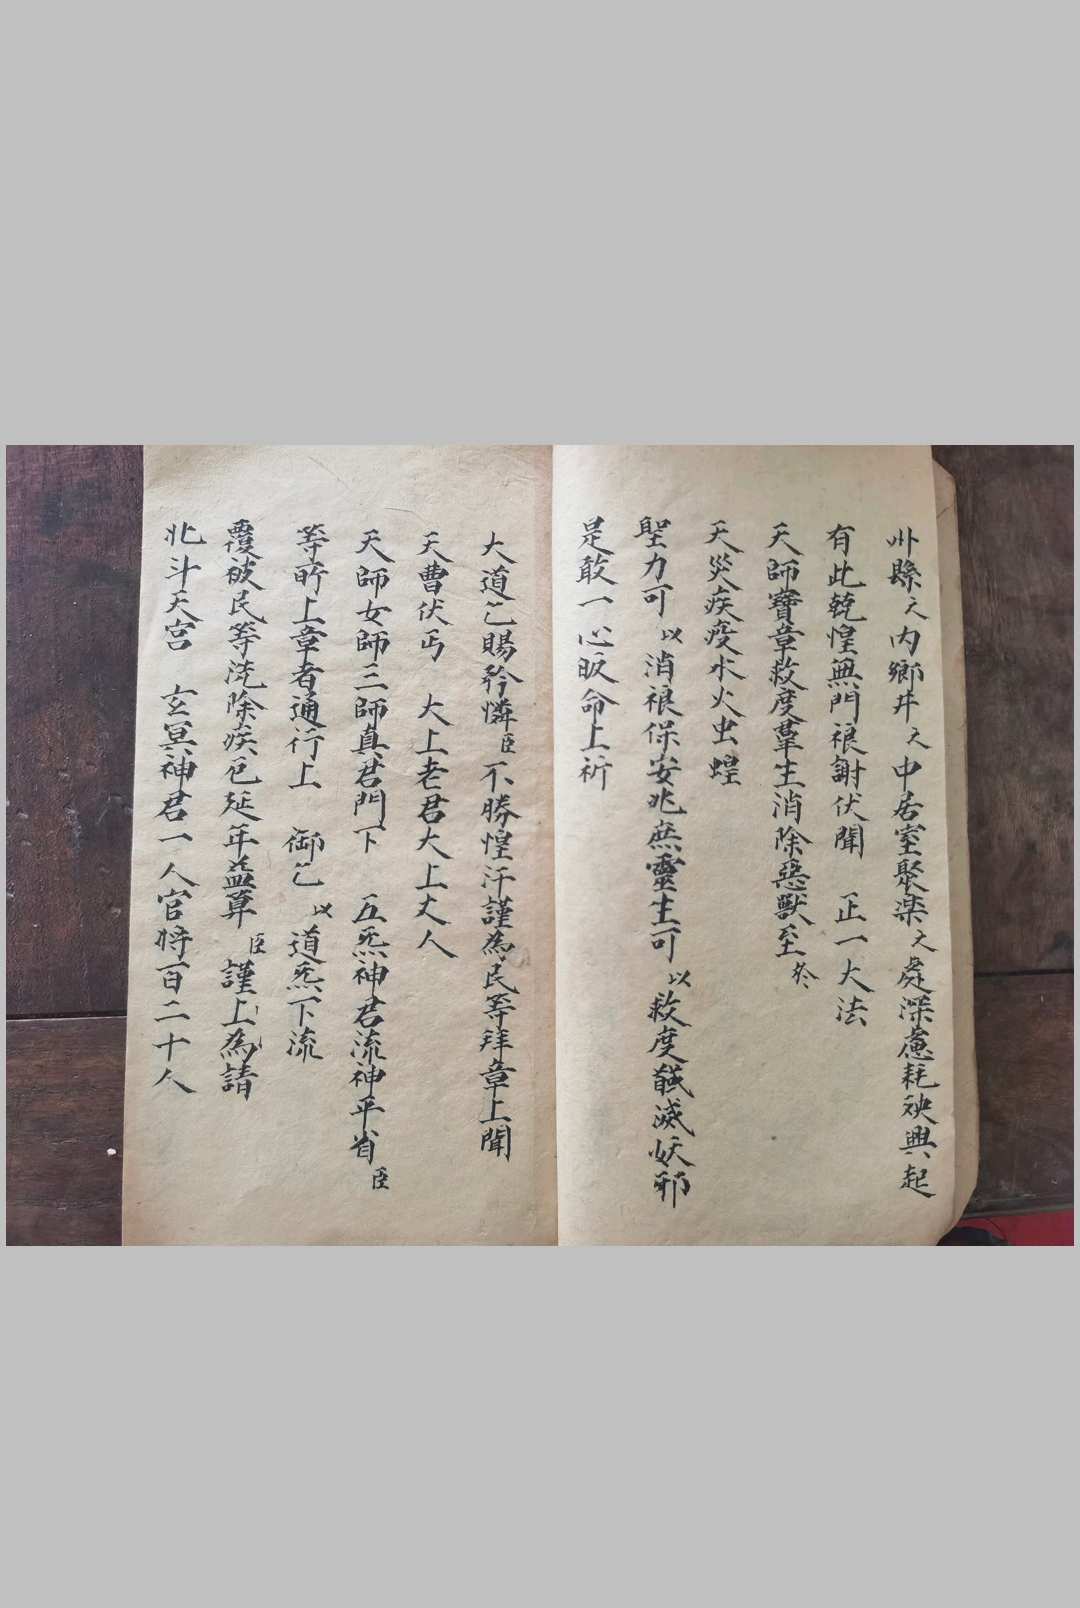 州縣之内鄉井之中居室聚楽之處深慮耗殃興起
有此兢惶無門禳謝伏聞 正一大法
天師寶章救度羣生消除惡獸至於
天災疾疫水火虫蝗
聖力可以消禳保安兆庶靈生可以救度馘滅妖邪
是敢一心皈命上祈
大道乞賜矜憐臣不勝惶汗謹為民等拜章上聞
天曹伏丐 大上老君大上丈人
天師女師三師真君門下 五炁神君流神平省臣
等所上章者通行上 御乞以道炁下流
覆被民等洗除疾厄延年益算臣謹上為請
北斗天宮 玄冥神君一人官将百二十人